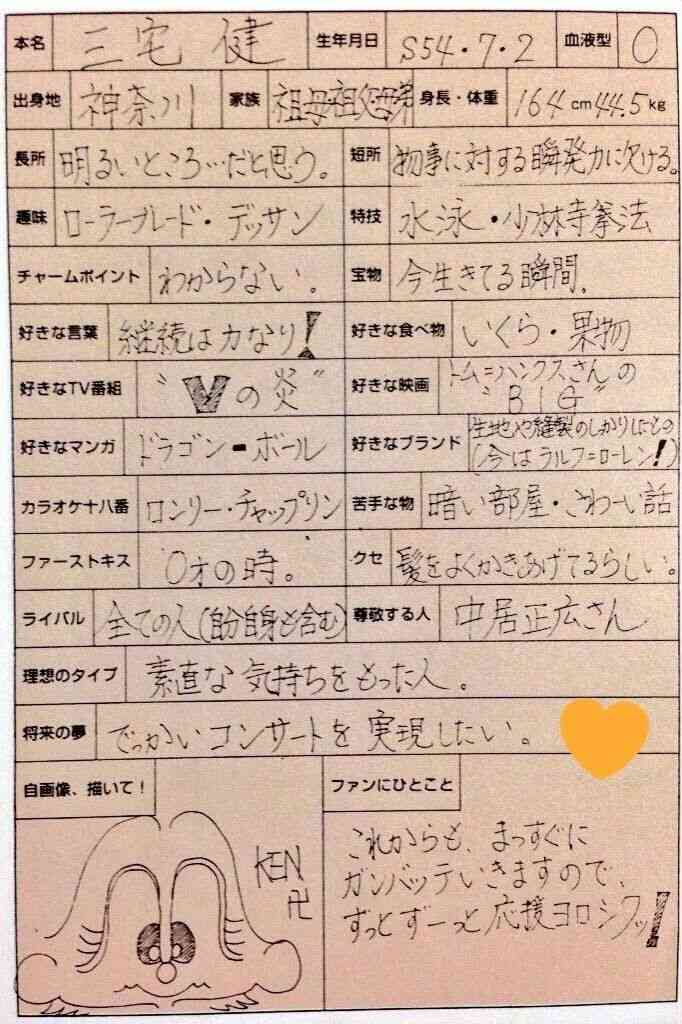 本名 三宅 健 生年月日 S54・7・2 血液型 O
出身地 神奈川 家族 祖母祖父母弟 身長・体重 164cm 44.5kg
長所 明るいところ…だと思う。 短所 物事に対する瞬発力に欠ける。
趣味 ローラーブレード・デッサン 特技 水泳・少林寺拳法
チャームポイント わからない。 宝物 今生きてる瞬間.
好きな言葉 継続は力なり! 好きな食べ物 いくら・果物
好きなTV番組 "Vの炎" 好きな映画 トム=ハンクスさんの
"BIG"
好きなマンガ ドラゴン-ボール 好きなブランド 生地や縫製のしっかりしたもの
(今はラルフ=ローレン!)
カラオケ十八番 ロンリー・チャップリン 苦手な物 暗い部屋・こわーい話
ファーストキス 0才の時。 クセ 髪をよくかきあげてるらしい。
ライバル 全ての人(自分自身も含む) 尊敬する人 中居正広さん
理想のタイプ 素直な気持ちをもった人。
将来の夢 でっかいコンサートを実現したい。
自画像、描いて!
KEN
卍
ファンにひとこと
これからも、まっすぐに
ガンバッテいきますので、
ずっとずーっと応援ヨロシクッ!